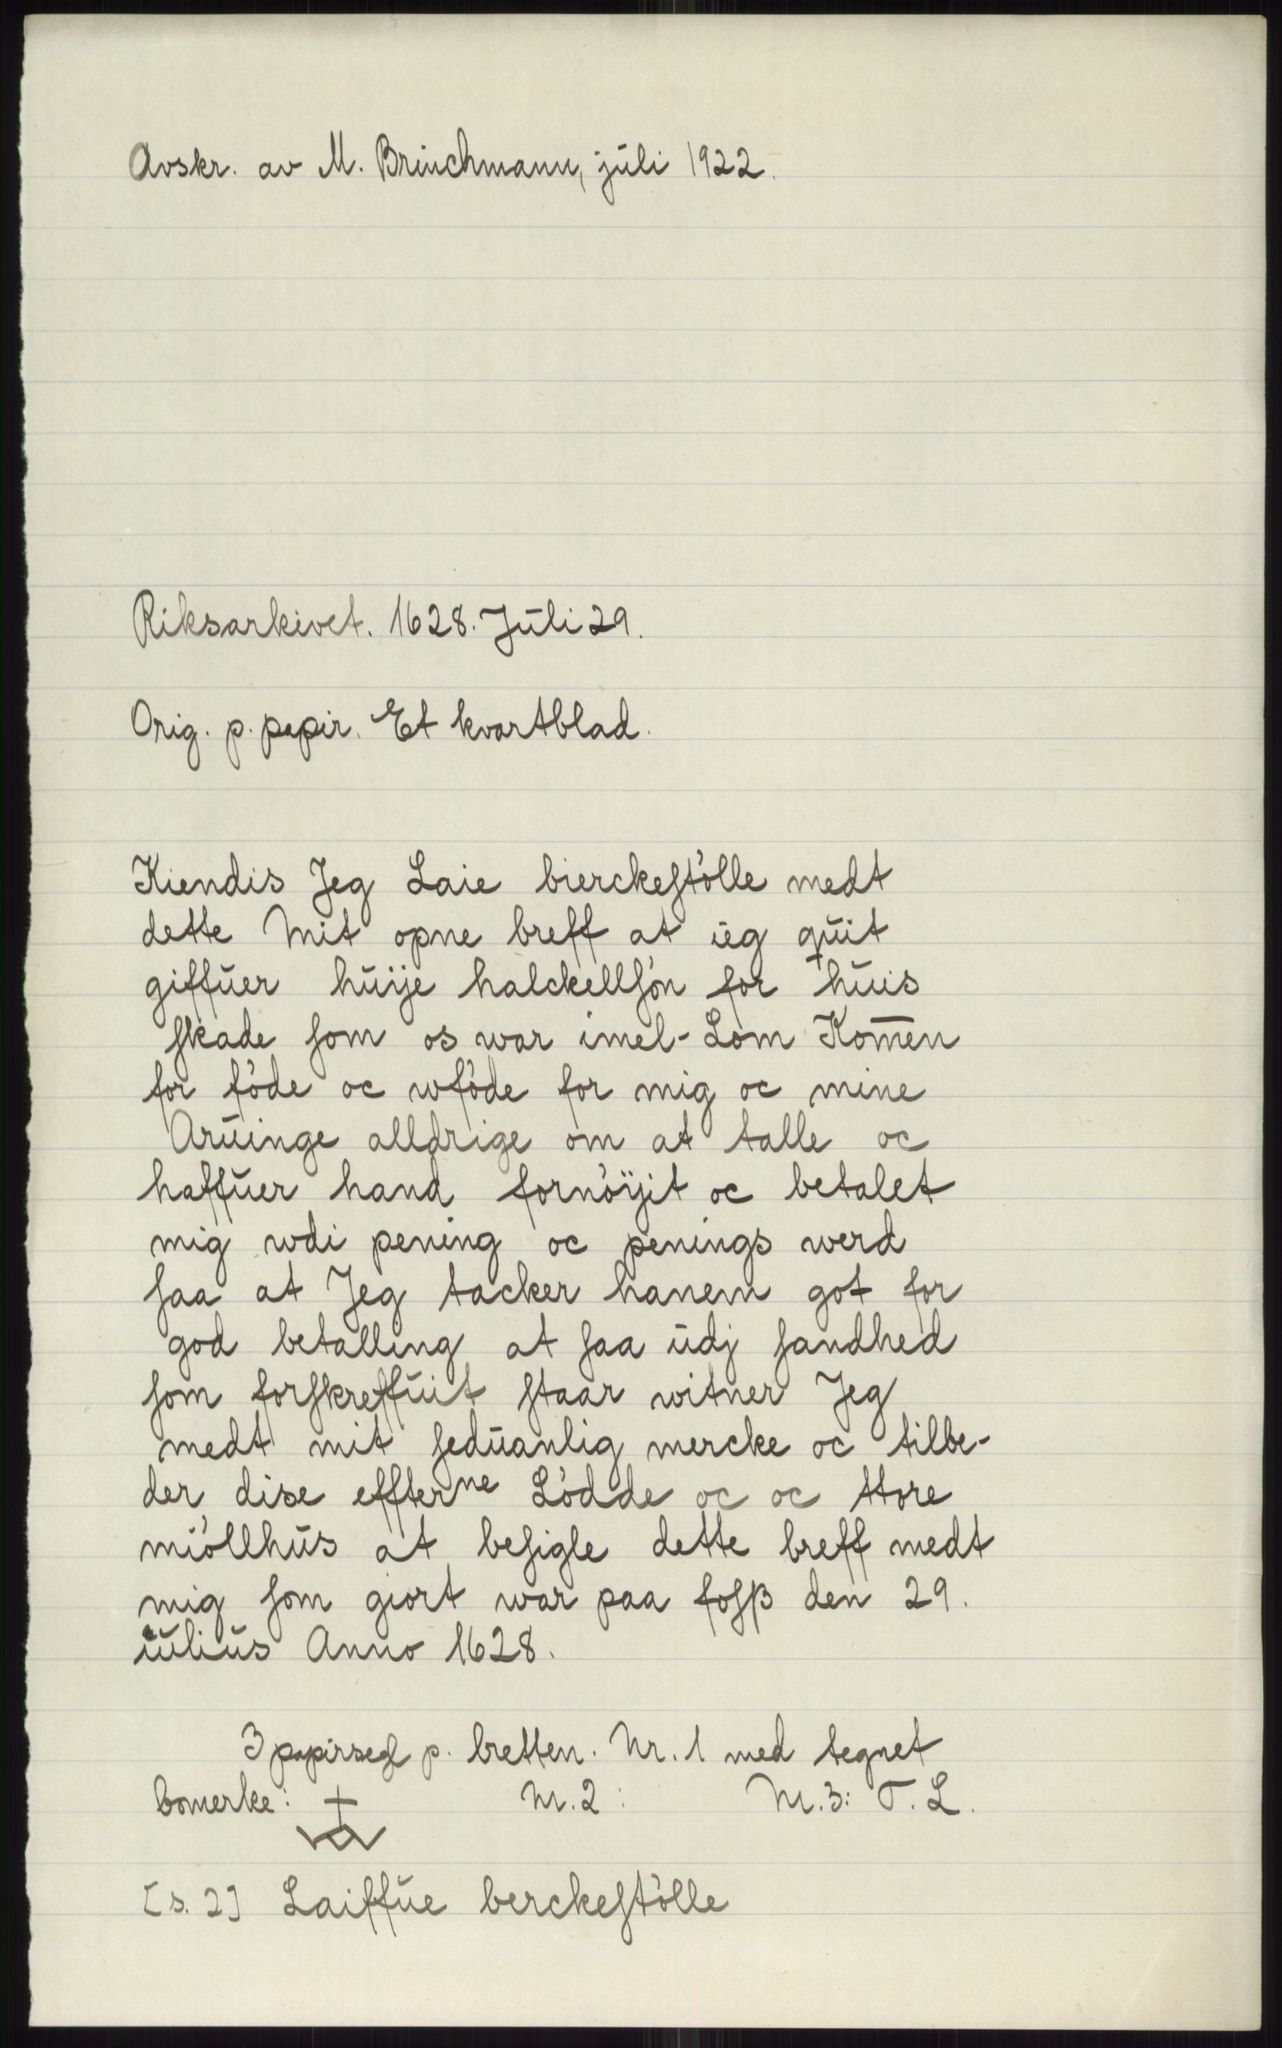 Avskr. av M. Brinchmann, juli 1922.
Riksarkivet. 1628. Juli 29.
Orig. p. papir. Et kvartblad.
Kiendis Jeg Laie bierckeſtölle medt
dette Mit opne breff at ieg quit
giffuer huije halckellſön for huis
ſkade ſom os war imel- Lom Kom̅en
for föde oc wföde for mig oc mine
Aruinge alldrige om at talle oc
haffuer hand fornöijit oc betalet
mig wdi pening oc penings werd
ſaa at Jeg tacker hanem got for
god betalling at ſaa udj ſandhed
ſom forſkreffuit ſtaar witner Jeg
medt mit ſeduanlig mercke oc tilbe-
der dise effterne Lödde oc oc ttore
miöllhus at beſigle dette breff medt
mig ſom giort war paa foſß den 29.
iulius Anno 1628.
3 papirsegl p. bretten. Nr. 1 med tegnet
bomerke: Nr. 2: Nr. 3: T. L.
[s. 2] Laiffue berckeſtölle